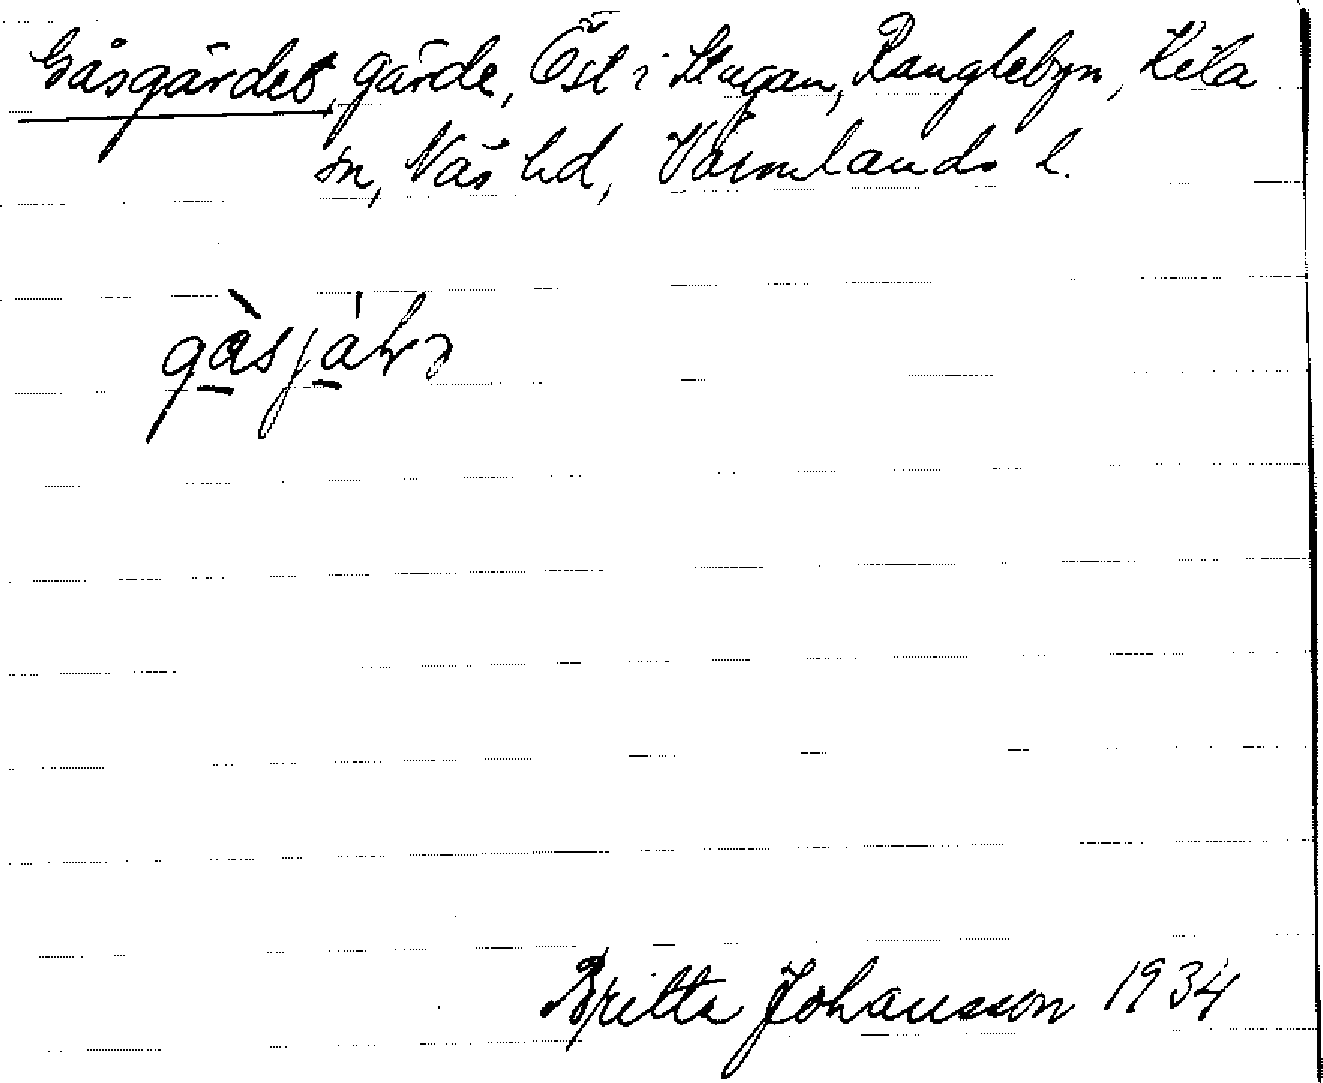 Gåsgärdet, gärde, Öst i Stugan, Ranglebyn, Kila
sn, Näs hd, Värmlands l.
Britta Johansson 1934